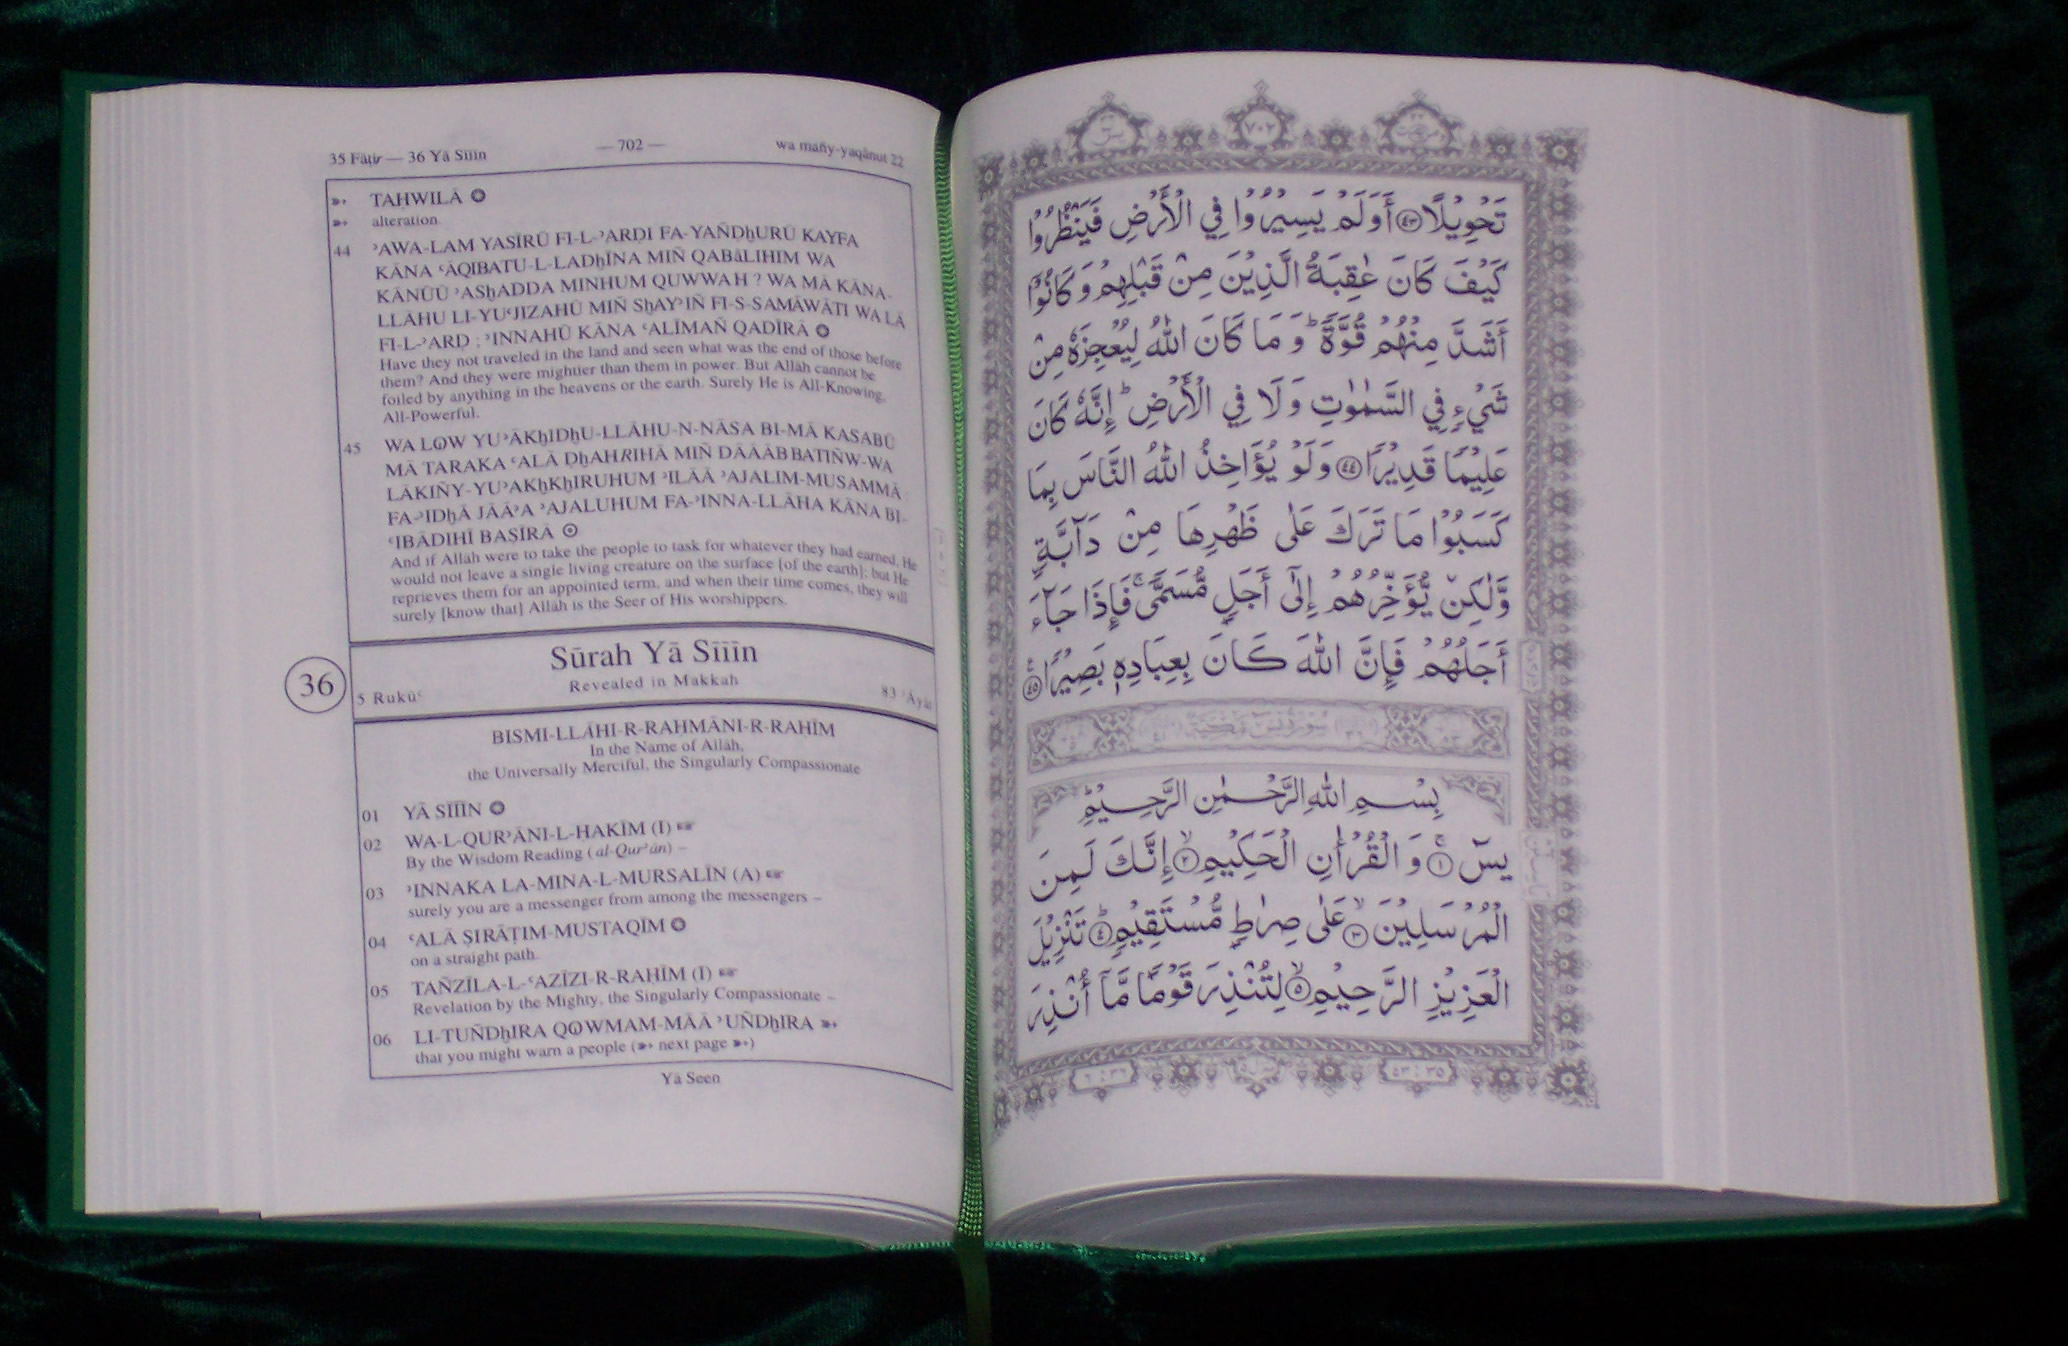 35 Fāṭir — 36 Yā Sīīīn
— 702 —
wa mañy-yaqānut 22
TAḤWILĀ
alteration.
44 ʾAWA-LAM YASĪRŪ FI-L-ʾARḌI FA-YAÑDẖURŪ KAYFA
KĀNA ʿĀQIBATU-L-LADẖĪNA MIÑ QABāLIHIM WA
KĀNŪŪ ʾASẖADDA MINHUM QUWWAH ? WA MĀ KĀNA-
LLĀHU LI-YUʿJIZAHŪ MIÑ SẖAYʾIÑ FI-S-SAMĀWĀTI WA LĀ
FI-L-ʾARḌ ; ʾINNAHŪ KĀNA ʿALĪMAÑ QADĪRĀ
Have they not traveled in the land and seen what was the end of those before
them? And they were mightier than them in power. But Allāh cannot be
foiled by anything in the heavens or the earth. Surely He is All-Knowing,
All-Powerful.
45 WA LѠW YUʾĀKẖIDẖU-LLĀHU-N-NĀSA BI-MĀ KASABŪ
MĀ TARAKA ʿALĀ ḌẖAHRIHĀ MIÑ DĀĀĀBBATIÑW-WA
LĀKIÑY-YUʾAKẖKẖIRUHUM ʾILĀĀ ʾAJALIM-MUSAMMĀ
FA-ʾIDẖĀ JĀĀʾA ʾAJALUHUM FA-ʾINNA-LLĀHA KĀNA BI-
ʿIBĀDIHĪ BAṢĪRĀ
And if Allāh were to take the people to task for whatever they had earned, He
would not leave a single living creature on the surface [of the earth]; but He
reprieves them for an appointed term, and when their time comes, they will
surely [know that] Allāh is the Seer of His worshippers.
36
Sūrah Yā Sīīīn
Revealed in Makkah
5 Rukūʿ
83 ʾĀyāt
BISMI-LLĀHI-R-RAHMĀNI-R-RAHĪM
In the Name of Allāh,
the Universally Merciful, the Singularly Compassionate
01 YĀ SĪĪĪN
02 WA-L-QURʾĀNI-L-HAKĪM (I)
By the Wisdom Reading (al-Qurʾān) –
03 ʾINNAKA LA-MINA-L-MURSALĪN (A)
surely you are a messenger from among the messengers –
04 ʿALĀ ṢIRĀṬIM-MUSTAQĪM
on a straight path.
05 TAÑZĪLA-L-ʿAZĪZI-R-RAḤĪM (I)
Revelation by the Mighty, the Singularly Compassionate –
06 LI-TUÑDẖIRA QѠWMAM-MĀĀ ʾUÑDẖIRA
that you might warn a people (➳ next page ➳)
Yā Seen
٧٠٢
تَحْوِيْلًا ﴿٤٣﴾ أَوَلَمْ يَسِيْرُوْا فِي الْأَرْضِ فَيَنْظُرُوْا
كَيْفَ كَانَ عٰقِبَةُ الَّذِيْنَ مِنْ قَبْلِهِمْ وَكَانُوْٓا
أَشَدَّ مِنْهُمْ قُوَّةً ؕ وَمَا كَانَ اللّٰهُ لِيُعْجِزَهٗ مِنْ
شَيْءٍ فِي السَّمٰوٰتِ وَلَا فِي الْأَرْضِ ؕ إِنَّهٗ كَانَ
عَلِيْمًا قَدِيْرًا ﴿٤٤﴾ وَلَوْ يُؤَاخِذُ اللّٰهُ النَّاسَ بِمَا
كَسَبُوْا مَا تَرَكَ عَلٰى ظَهْرِهَا مِنْ دَآبَّةٍ
وَّلٰكِنْ يُّؤَخِّرُهُمْ إِلٰٓى أَجَلٍ مُّسَمًّى ۚ فَإِذَا جَآءَ
أَجَلُهُمْ فَإِنَّ اللّٰهَ كَانَ بِعِبَادِهٖ بَصِيْرًا ﴿٤٥﴾
بِسْمِ اللّٰهِ الرَّحْمٰنِ الرَّحِيْمِ
يٰسٓ ﴿١﴾ وَالْقُرْاٰنِ الْحَكِيْمِ ﴿٢﴾ إِنَّكَ لَمِنَ
الْمُرْسَلِيْنَ ﴿٣﴾ عَلٰى صِرَاطٍ مُّسْتَقِيْمٍ ﴿٤﴾ تَنْزِيْلَ
الْعَزِيْزِ الرَّحِيْمِ ﴿٥﴾ لِتُنْذِرَ قَوْمًا مَّآ أُنْذِرَ